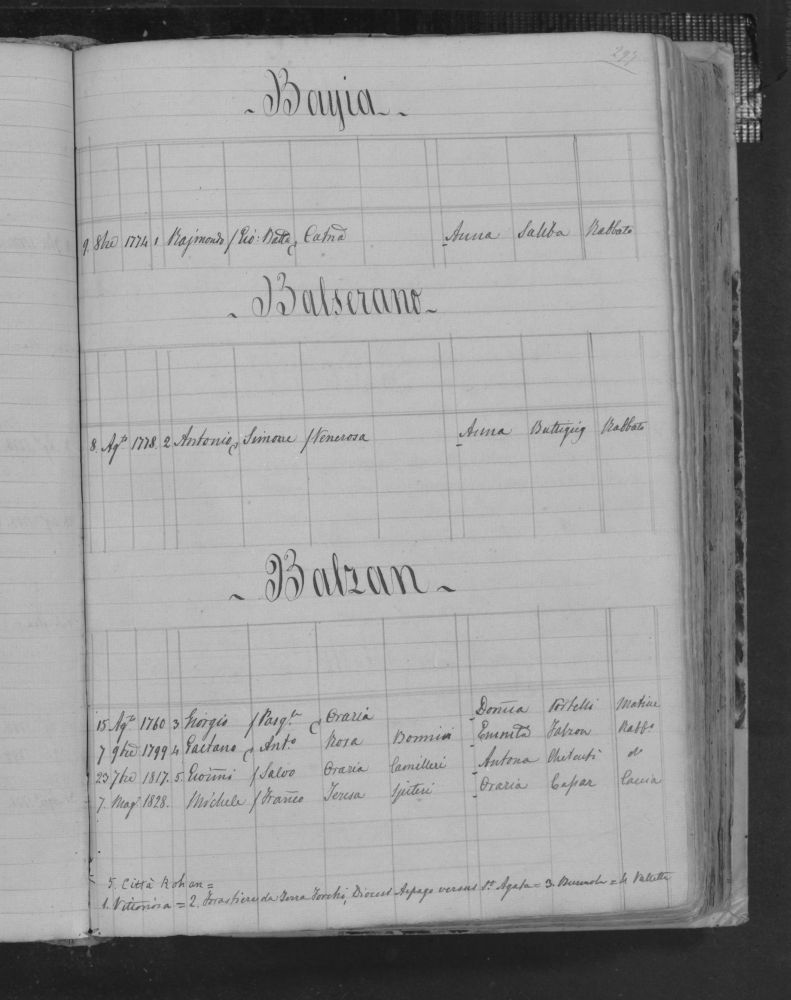 297
- Bayia -
9. 8bre 1774 1 Rajmondo / Gio: Batta Catna Anna Saliba Rabbato
- Balserano -
8. Agto 1778. 2 Antonio, Simone / Venerosa Anna Buttigieg Rabbato
- Balzan -
15 Agto 1760 3 Giorgio / Pasqle Grazia Domca Portelli Matrice
7 9bre 1799 4 Gaetano Anto Rosa Bonnici Emnta Falzon Rabbo
23 7bre 1817. 5. Giōnni / Salvo Grazia Camilleri Antona do
7. Magº 1828. Michele / Franco Teresa Spiteri Grazia Caccia
5. Città Rohan =
1. Vittoriosa = 2. Forastiere da Terra Diocesi versus St Agata = 3. = 4 Valletta